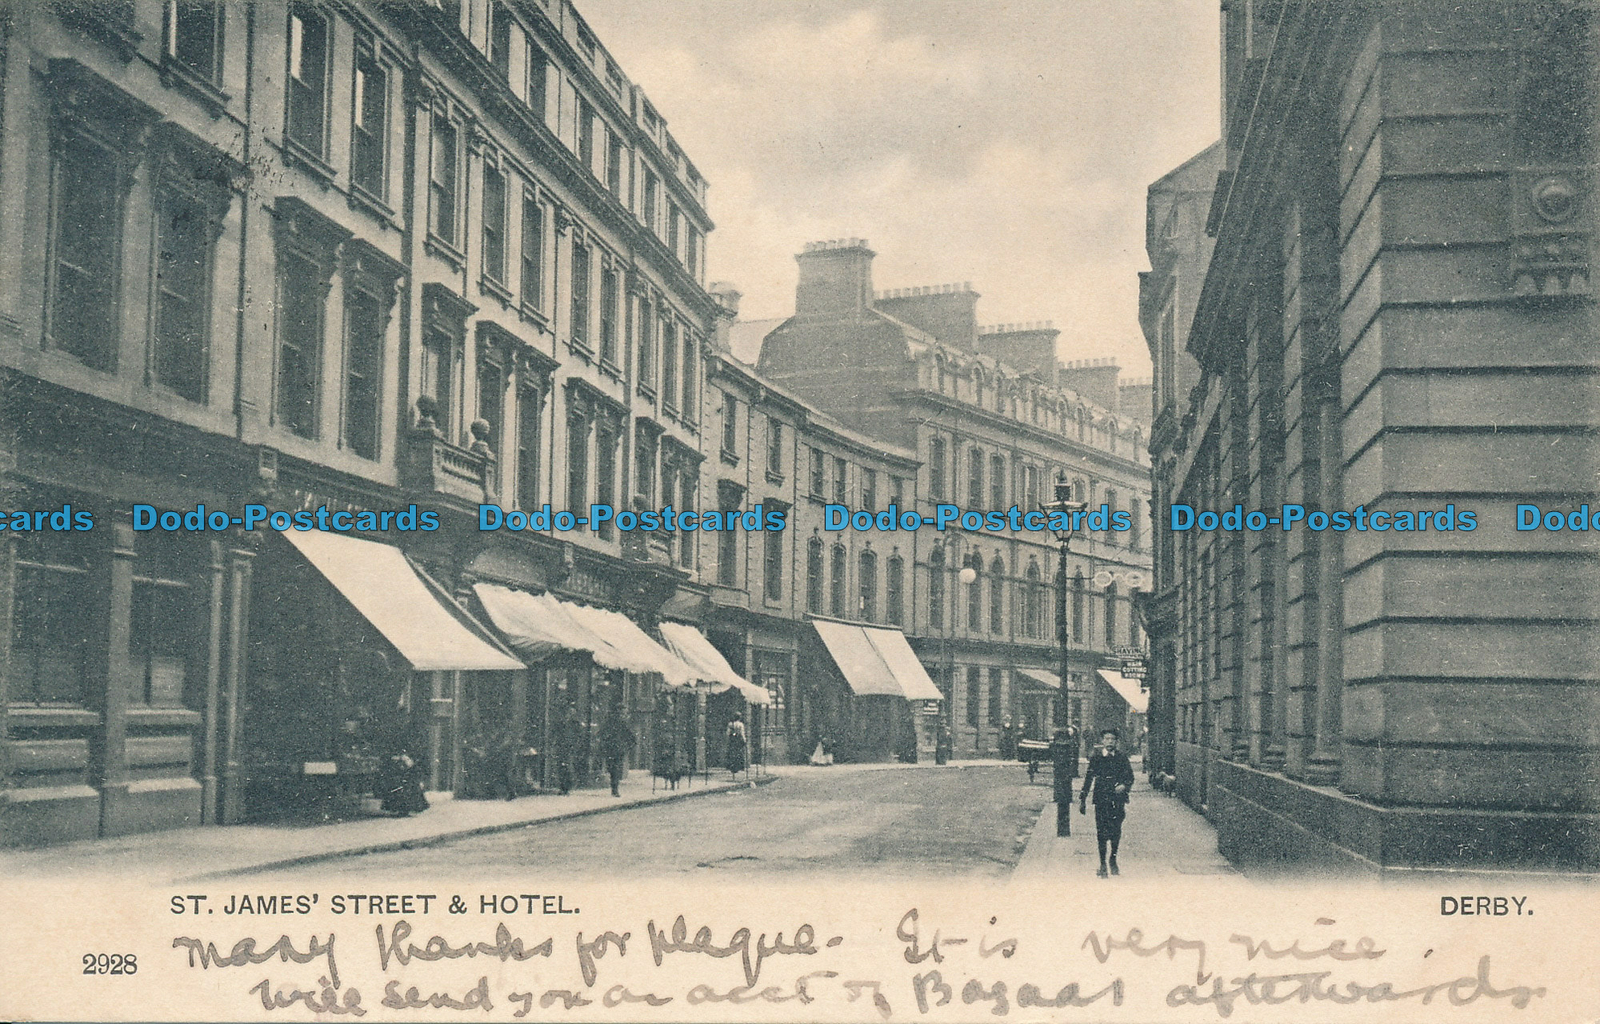 cards Dodo-Postcards Dodo-Postcards Dodo-Postcards Dodo-Postcards Dodo
SHAVING
HAIR
CUTTING
ROOMS
ST. JAMES' STREET & HOTEL. DERBY.
2928
Many thanks for plaque - It is very nice.
Will send you an acct of Bazaar afterwards.